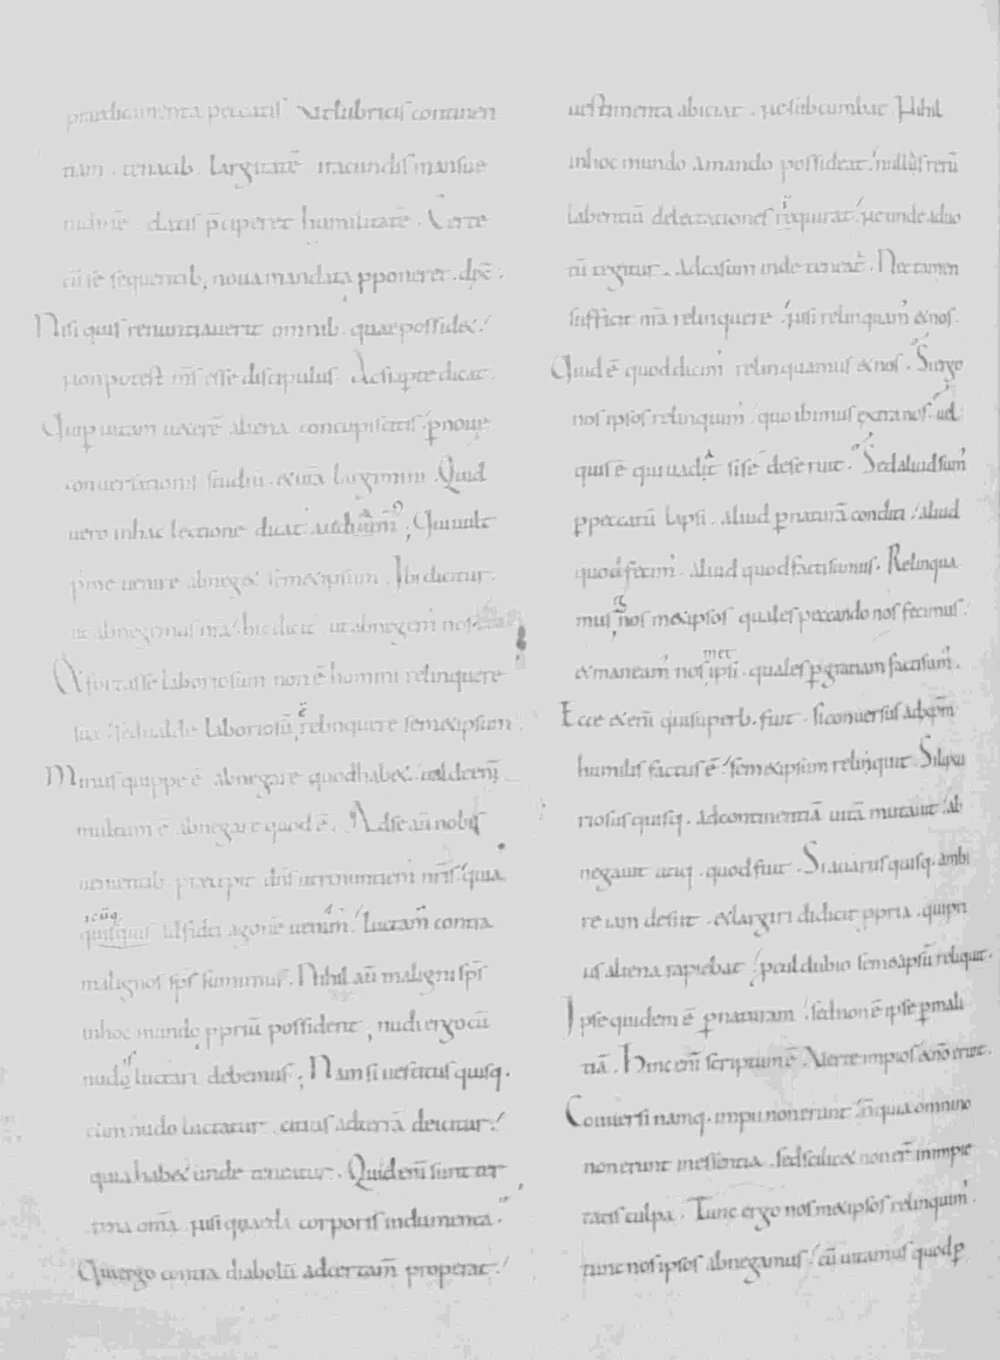 praedicamenta peccatis Ut lubricis continen
tiam . tenacib. largitatē iracundis mansue
tudinē . elatis p̄ciperet humilitatē . Certe
cū se sequentib; noua mandata pponeret . dix̄ .
Nisi quis renuntiauerit omnib. quae possidet .'
non potest ms̄ esse discipulus Ac si apte dicat .
Qui p uitam ueterē aliena concupiscitis .' p nouę
conuersationis studiū . et ur̄a largimini . Quid
uero in hac lectione dicat audiam̄ ; Qui uult
p me uenire abneget semetipsum . Ibi dicitur .
ut abnegemus nr̄a .' hic dicit ut abnegem' nos
Et fortasse laboriosum non ē homini relinquere
sua .' sed ualde laboriosū ē relinquere semetipsum .
Minus quippe ē abnegare quod habet .' ualde enī
multum ē abnegare quod ē . Ad se au̅ nobis
uenientib. praecipit dn̄s ut renuntiem' nr̄is .' quia
quicūq. ad fidei agonē uenim' .' luctam̄ contra
malignos sp̄s sumimus . Nihil au̅ maligni sp̄s
in hoc mundo ppriū possident , nudi ergo cū
nudis luctari debemus ; Nam si uestitus quisq.
cum nudo luctatur citius ad terrā deicitur .'
quia habet unde teneatur . Quid enī sunt ter
rena om̄a . nisi quaedā corporis indumenta .
Qui ergo contra diabolū ad certam̄ properat .'
uestimenta abiciat . ne subcumbat Nihil
in hoc mundo amando possideat .' nullas rerū
labentiū delectationes requirat .' ne unde ad uo
tū tegitur . ad casum inde teneat' . Nec tamen
sufficit nr̄a relinquere .' nisi relinquam' et nos .
Quid ē quod dicim' relinquamus et nos . Si ergo
nos ipsos relinquim' . quo ibimus extra nos . uel
quis ē qui uadit si se deseruit . Sed aliud sum'
p peccatū lapsi . aliud p naturā conditi .' aliud
quod fecim' . aliud quod facti sumus . Relinqua
mus g nos metipsos quales peccando nos fecimus .'
et maneam' nosmet ipsi . quales p gratiam facti sum' .
Ecce etenī qui superb. fuit . si conuersus ad xp̄m
humilis factus ē .' semetipsum relinquit . Si luxu
riosus quisq. ad continentiā uitā mutauit .' ab
negauit utiq. quod fuit . Si auarus quisq. ambi
re iam desiit . et largiri didicit ppria . qui pri
us aliena rapiebat .' pcul dubio semetipsū reliquit .
Ipse quidem ē p naturam .' sed non ē ipse p mali
tiā . Hinc enī scriptum ē Uerte impios et nō erunt .
Conuersi namq. impii non erunt .' n̄ quia omnino
non erunt in essentia . sed scilicet non er̄t in impie
tatis culpa . Tunc ergo nos metipsos relinquim' .
tunc nos ipsos abnegamus .' cū uitamus quod p